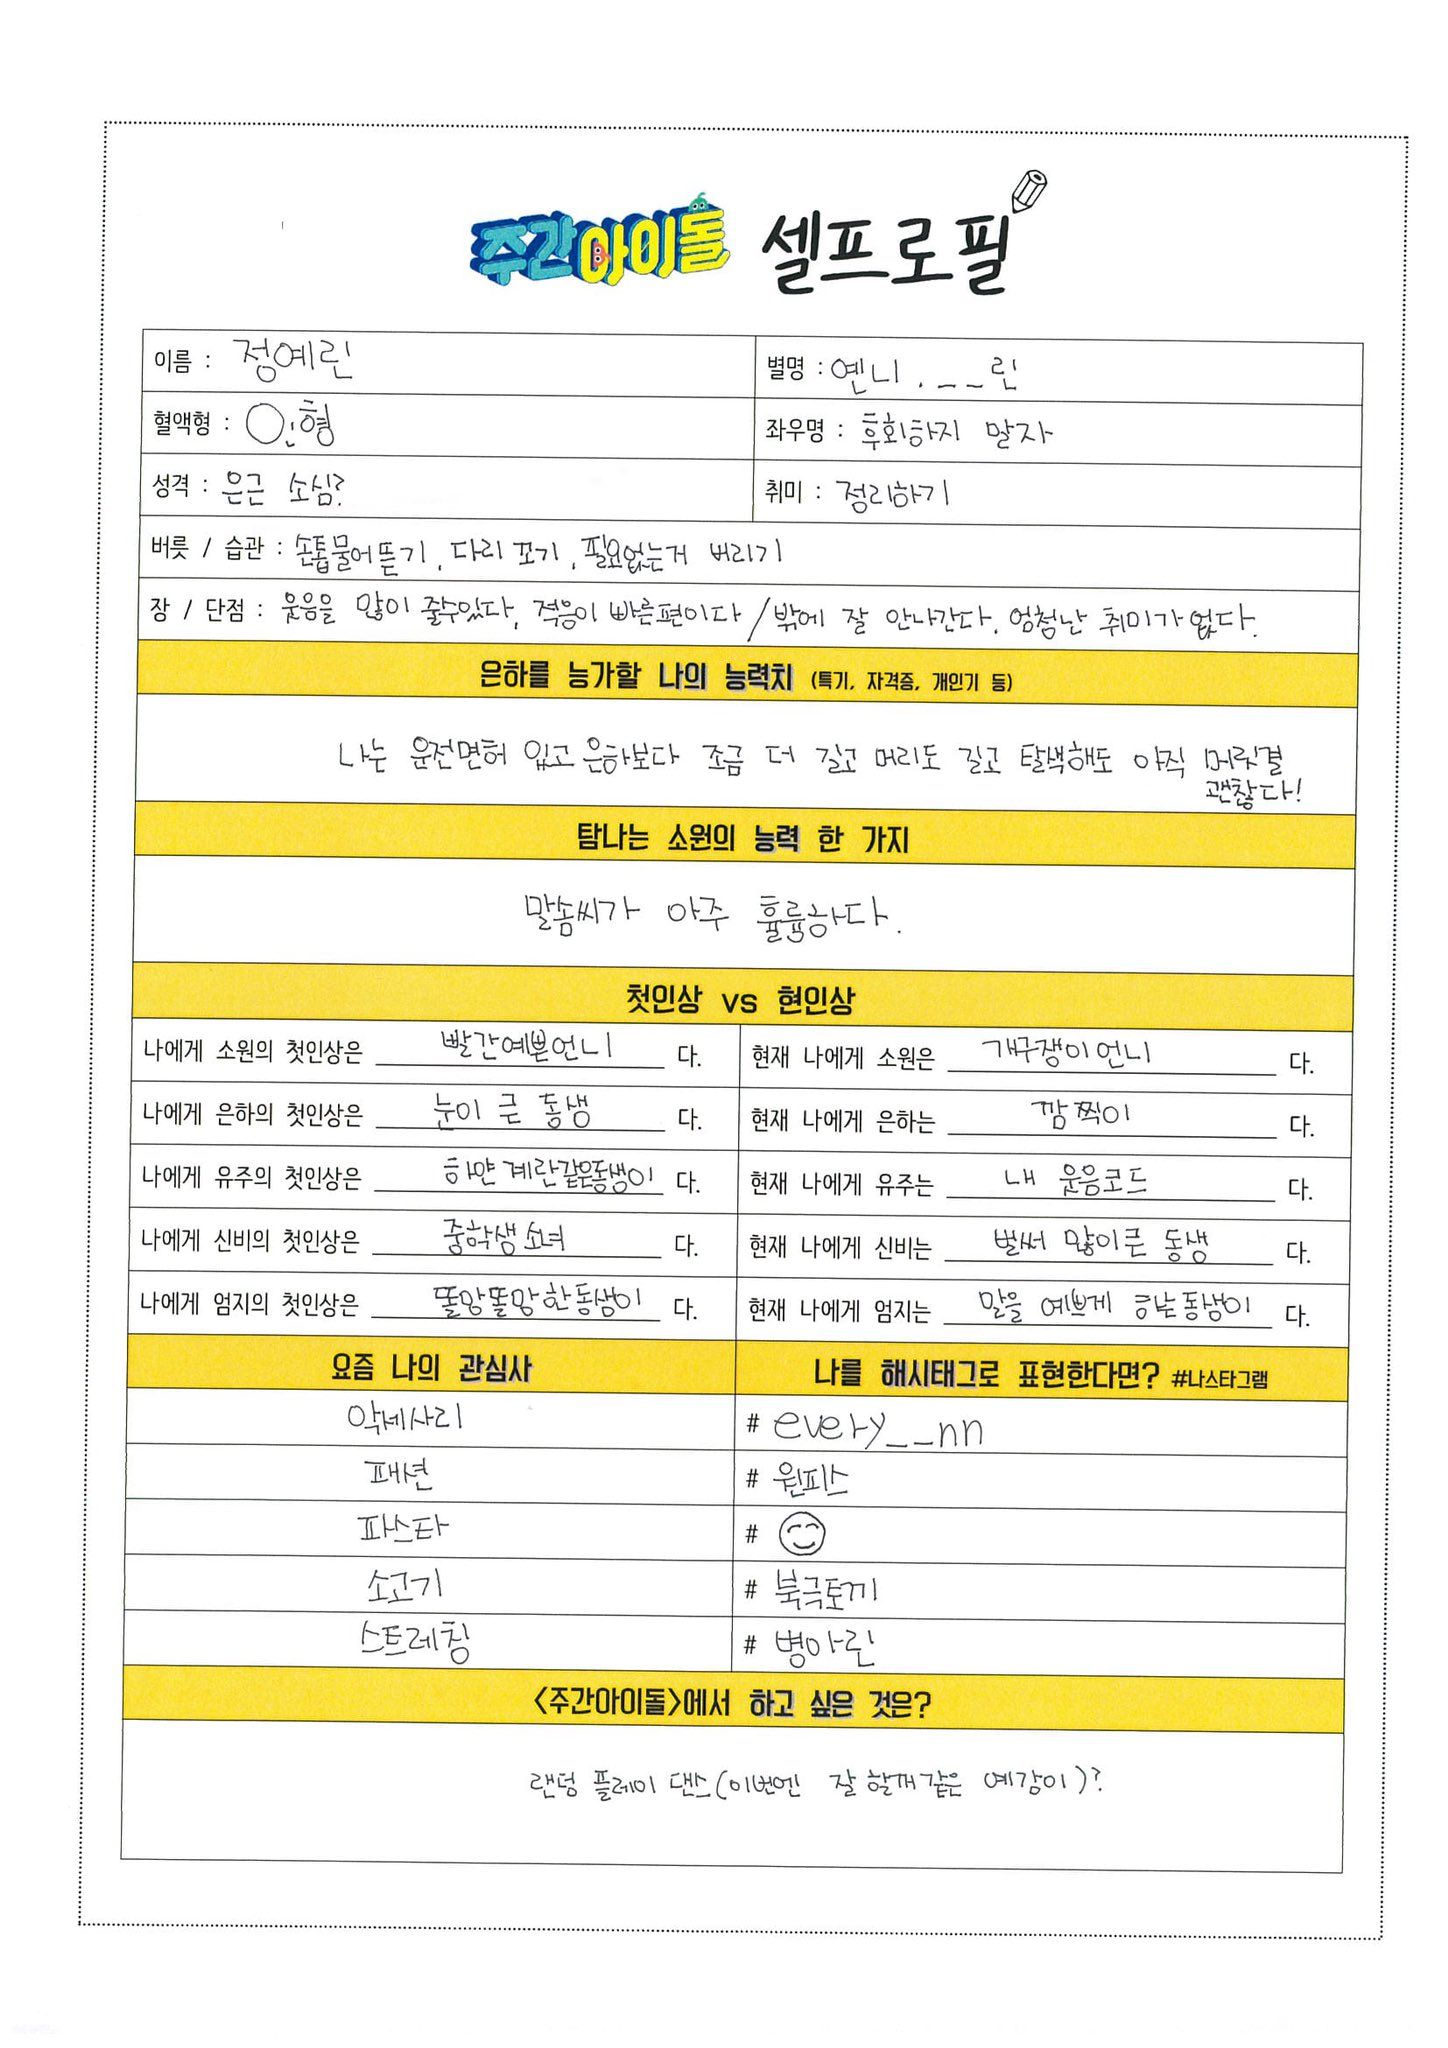 주간아이돌 셀프로필
이름 : 정예린
별명 : 옌니 . _ _ 린
혈액형 : O.형
좌우명 : 후회하지 말자
성격 : 은근 소심?
취미 : 정리하기
버릇 / 습관 : 손톱물어뜯기, 다리 꼬기, 필요없는거 버리기
장 / 단점 : 웃음을 많이 줄수있다, 적응이 빠른편이다 / 밖에 잘 안나간다. 엄청난 취미가 없다.
은하를 능가할 나의 능력치 (특기, 자격증, 개인기 등)
나는 운전면허 있고 은하보다 조금 더 길고 머리도 길고 탈색해도 아직 머릿결
괜찮다!
탐나는 소원의 능력 한 가지
말솜씨가 아주 훌륭하다.
첫인상 vs 현인상
나에게 소원의 첫인상은 빨간예쁜언니 다.
현재 나에게 소원은 개구쟁이 언니 다.
나에게 은하의 첫인상은 눈이 큰 동생 다.
현재 나에게 은하는 깜찍이 다.
나에게 유주의 첫인상은 하얀 계란같은동생이 다.
현재 나에게 유주는 내 웃음코드 다.
나에게 신비의 첫인상은 중학생 소녀 다.
현재 나에게 신비는 벌써 많이큰 동생 다.
나에게 엄지의 첫인상은 똘망똘망한동생이 다.
현재 나에게 엄지는 말을 예쁘게 하는동생이 다.
요즘 나의 관심사
나를 해시태그로 표현한다면? #나스타그램
악세사리
# every__nn
패션
# 원피스
파스타
#
소고기
# 북극토끼
스트레칭
# 병아린
<주간아이돌>에서 하고 싶은 것은?
랜덤 플레이 댄스(이번엔 잘 할꺼같은 예감이)?